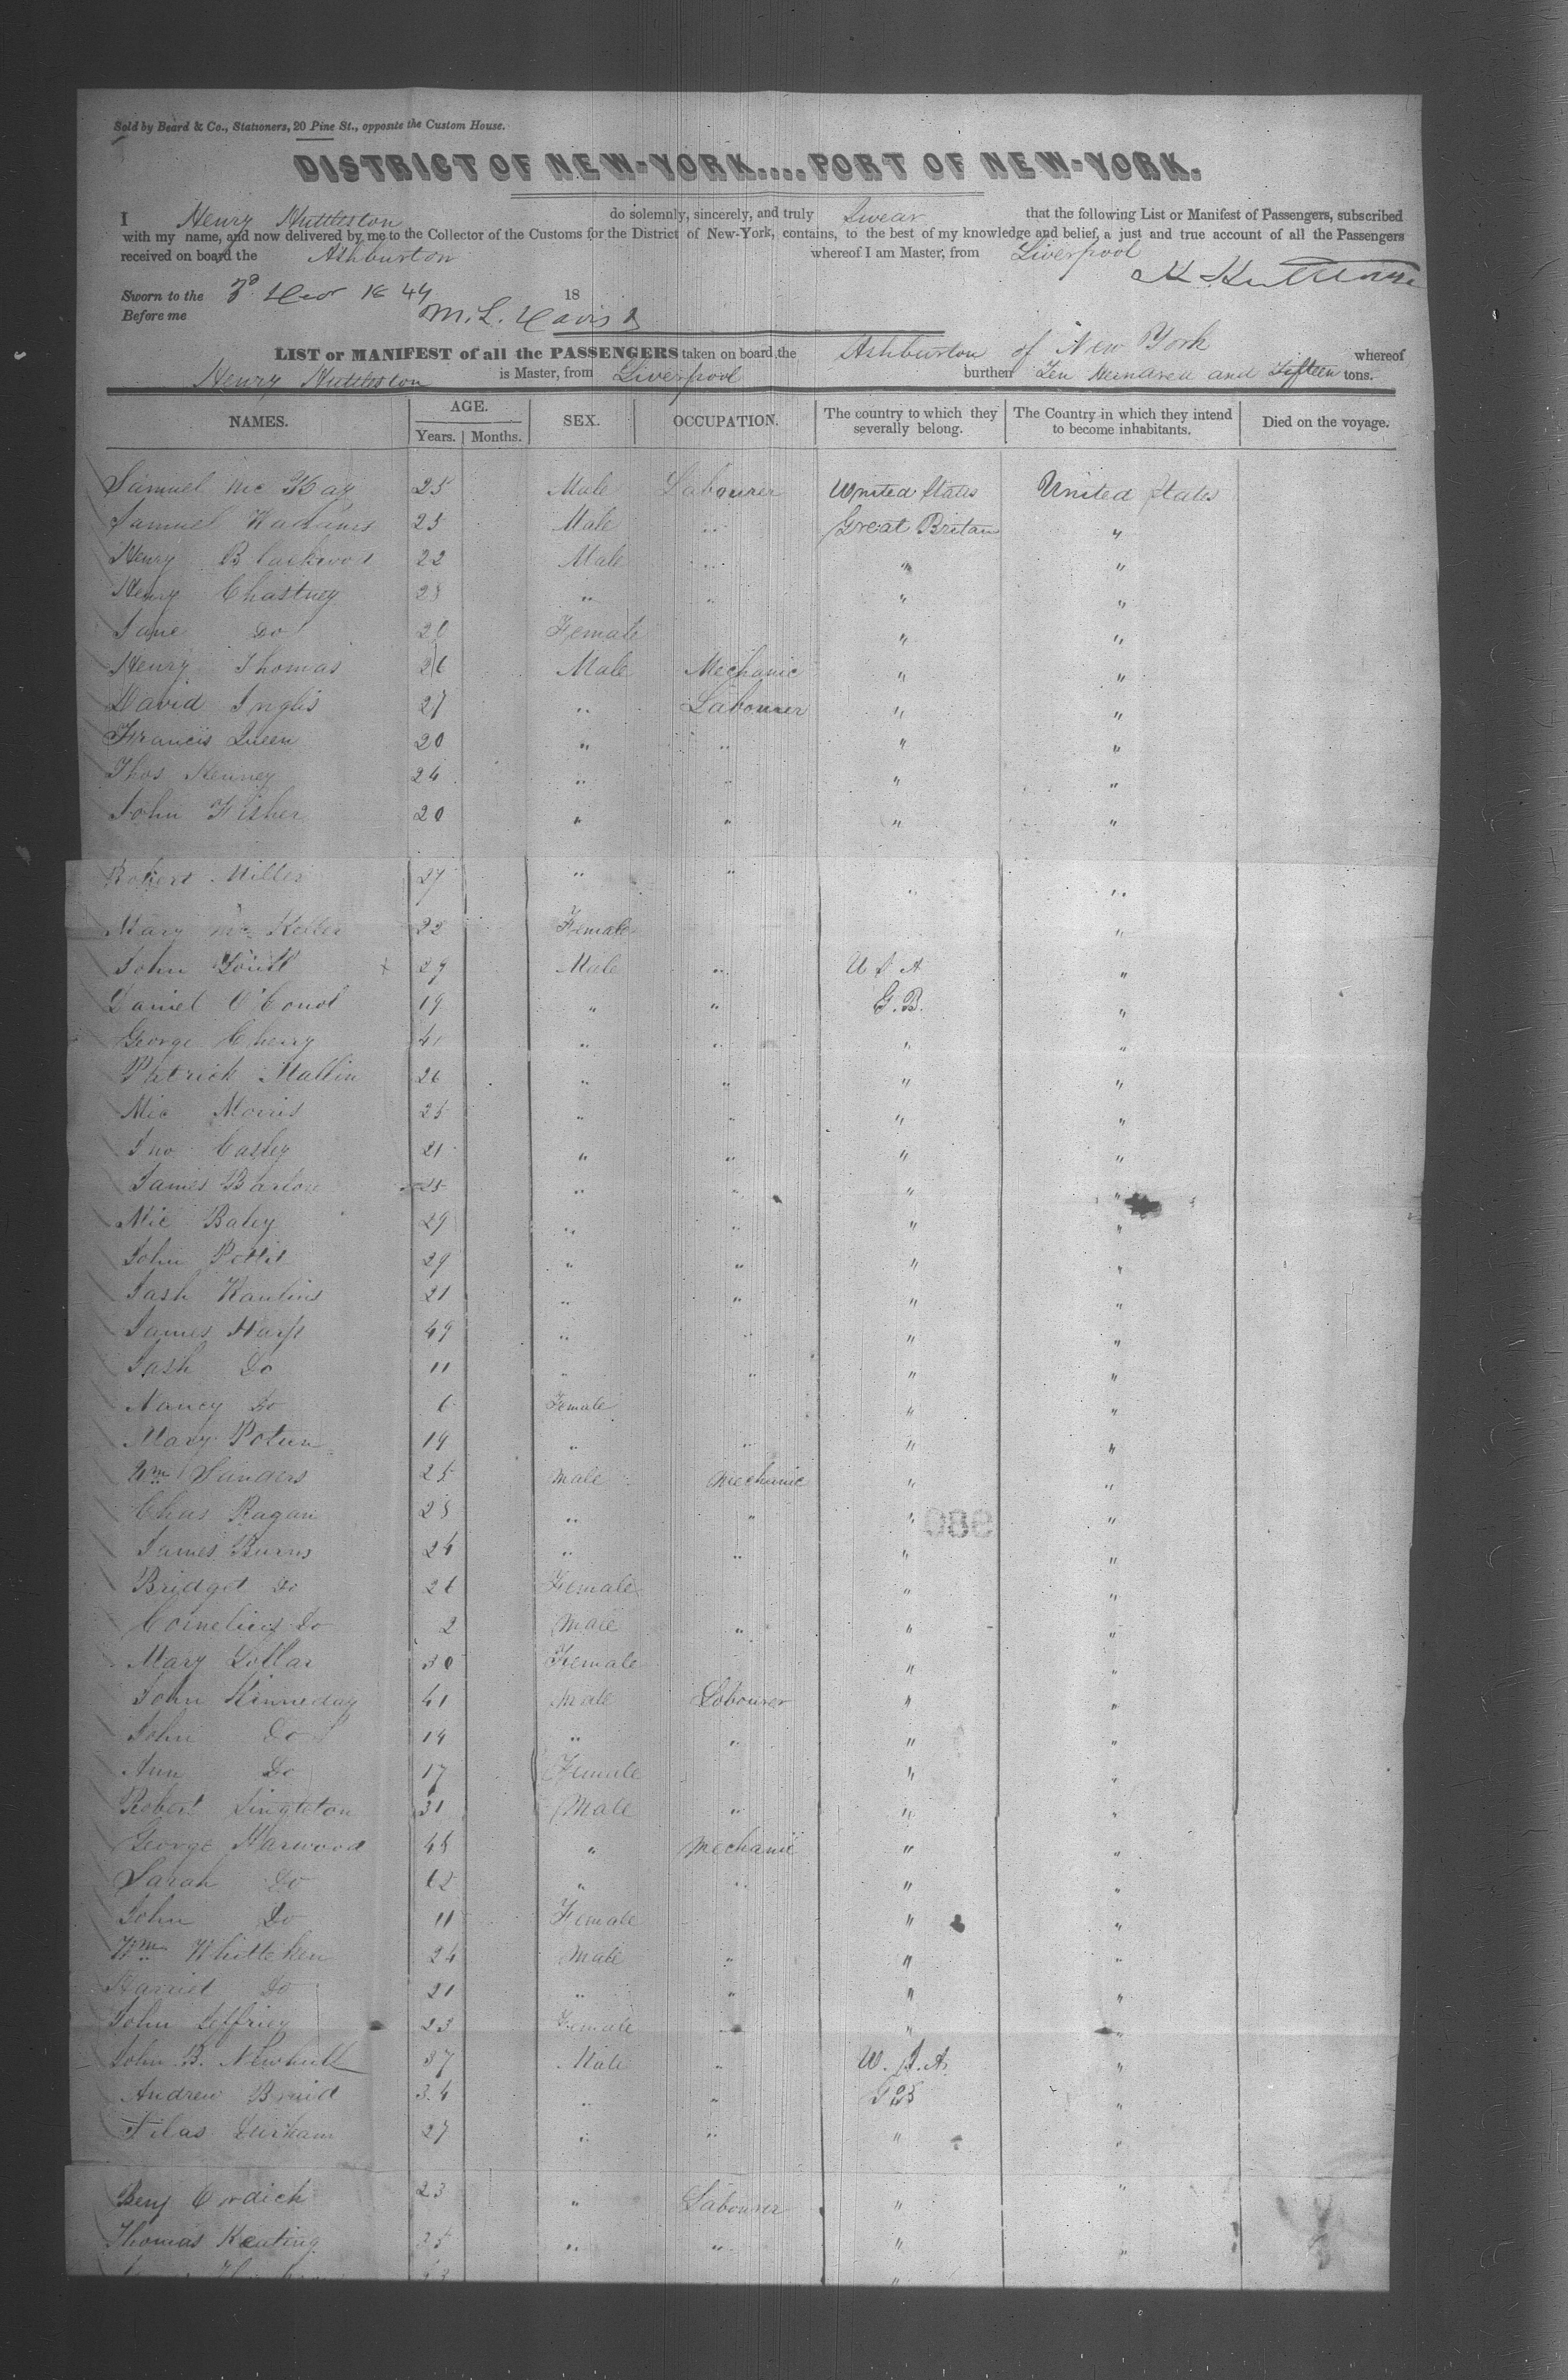 Sold by Beard & Co., Stationers, 20 Pine St., opposite the Custom House.
DISTRICT OF NEW-YORK....PORT OF NEW-YORK.
I Henry Huttleston do solemnly, sincerely, and truly Swear that the following List or Manifest of Passengers, subscribed
with my name, and now delivered by me to the Collector of the Customs for the District of New-York, contains, to the best of my knowledge and belief, a just and true account of all the Passengers
received on board the Ashburton whereof I am Master, from Liverpool
H Huttleston
Sworn to the 3d 1844 18
Before me M. L. Davis
LIST or MANIFEST of all the PASSENGERS taken on board the Ashburton of New York whereof
Henry Huttleston is Master, from Liverpool burthen Ten Hundred and Fifteen tons.
NAMES. AGE. Years. Months. SEX. OCCUPATION. The country to which they severally belong. The Country in which they intend to become inhabitants. Died on the voyage.
Samuel Mc Kay 25 Male Labourer United States United States
Samuel 25 Male " Great Britan "
Henry Blackwood 22 Male " " "
Henry Chastney 28 " " " "
Jane Do 26 Female " "
Henry Thomas 26 Male Mechanic " "
David Inglis 27 " Labourer " "
Francis Queen 20 " " " "
Thos Kenney 24 " " " "
John Fisher 20 " " " "
Robert Miller 27 " " " "
Mary Mc Keller 22 Female "
John 29 Male " U S A "
Daniel O'Conol 19 " " G.B. "
George Cherry 41 " " " "
Patrick Mallin 26 " " " "
Mic Morris 25 " " " "
Jno Casley 21 " " " "
James Barlow 25 " " " "
Mic Baley 29 " " " "
John Pettit 29 " " " "
Jash Rawlins 21 " " " "
James Harp 49 " " " "
Jash Do 11 " " " "
Nancy Do 6 Female " "
Mary 19 " " " "
Wm Sanders 25 Male Mechanic " "
Chas Ragan 28 " " " "
James Burns 24 " " " "
Bridget Do 26 Female " "
Cornelius Do 2 Male " " "
Mary Lollar 30 Female " "
John Kinneday 41 Male Labourer " "
John Do 14 " " " "
Ann Do 17 Female " "
Robert Singleton 31 Male " " "
George Harwood 45 " Mechanic " "
Sarah Do 62 " " " "
John Do 11 Female " "
Wm Whitteken 24 Male " " "
Harriet Do 21 " " " "
John Jeffriey 23 Female " " "
John B. Newhall 37 Male " U.S.A. "
Andrew Braid 34 " " G B "
Silas Durham 27 " " " "
Benj Cordick 23 " Labourer " "
Thomas Keating 25 " " " "